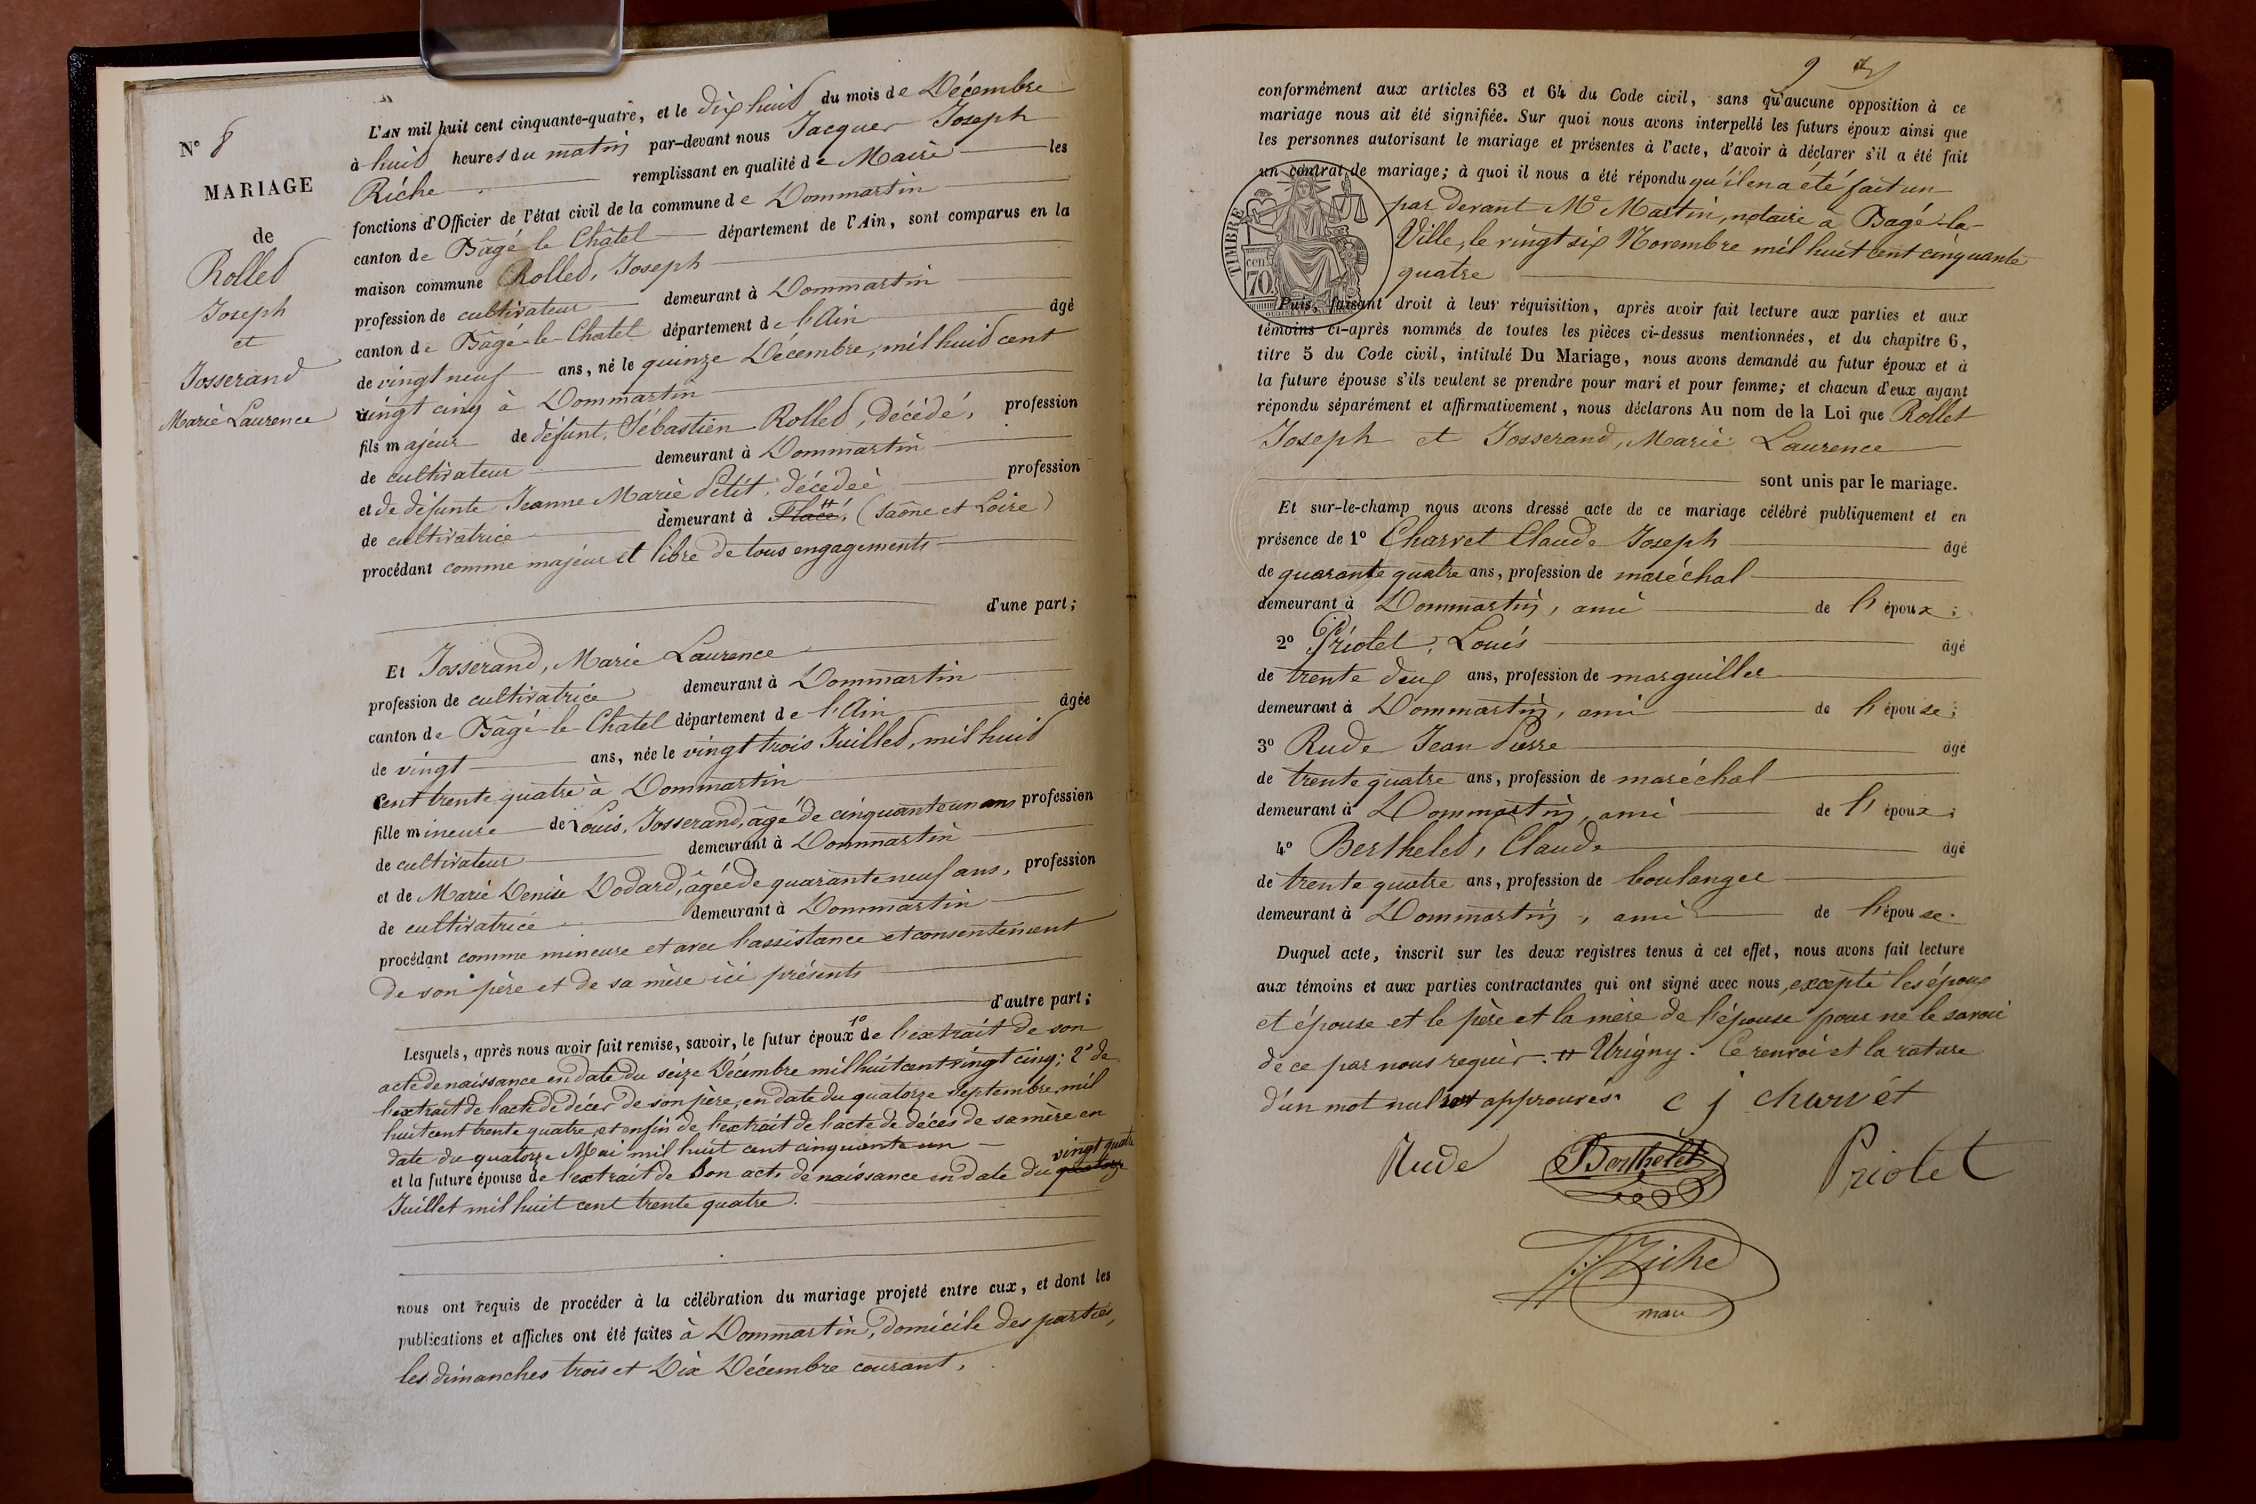 N° 8
MARIAGE
de
Rollet
Joseph
et
Josserand
Marie Laurence
L'AN mil huit cent cinquante-quatre, et le dix huit du mois de Décembre
à huit heures du matin par-devant nous Jacques Joseph
Riche remplissant en qualité de Maire les
fonctions d'Officier de l'état civil de la commune de Dommartin
canton de Bâgé-le-Châtel département de l'Ain, sont comparus en la
maison commune Rollet, Joseph
profession de cultivateur demeurant à Dommartin
canton de Bâgé-le-Chatel département de l'Ain âgé
de vingt neuf ans, né le quinze Décembre, mil huit cent
vingt cinq à Dommartin
fils majeur de défunt, Sébastien Rollet, décédé, profession
de cultivateur demeurant à Dommartin
et de défunte Jeanne Marie Petit, décédée profession
de cultivatrice demeurant à Placé, # (Saône et Loire)
procédant comme majeur et libre de tous engagements
d'une part;
Et Josserand, Marie Laurence
profession de cultivatrice demeurant à Dommartin
canton de Bâgé-le-Châtel département de l'Ain âgée
de vingt ans, née le vingt trois Juillet, mil huit
cent trente quatre à Dommartin
fille mineure de Louis, Josserand, âgé de cinquante un ans profession
de cultivateur demeurant à Dommartin
et de Marie Denise Dodard, âgée de quarante neuf ans, profession
de cultivatrice demeurant à Dommartin
procédant comme mineure et avec l'assistance et consentement
de son père et de sa mère ici présents
d'autre part;
Lesquels, après nous avoir fait remise, savoir, le futur époux 1° de l'extrait de son
acte de naissance en date du seize Décembre mil huit cent vingt cinq; 2° de
l'extrait de l'acte de décès de son père, en date du quatorze septembre mil
huit cent trente quatre, et enfin de l'extrait de l'acte de décès de sa mère en
date du quatorze Mai mil huit cent cinquante un
et la future épouse de l'extrait de son acte de naissance en date du quatorze vingt quatre
Juillet mil huit cent trente quatre.
nous ont requis de procéder à la célébration du mariage projeté entre eux, et dont les
publications et affiches ont été faites à Dommartin, domicile des parties,
les dimanches trois et Dix Décembre courant,
9
conformément aux articles 63 et 64 du Code civil, sans qu'aucune opposition à ce
mariage nous ait été signifiée. Sur quoi nous avons interpellé les futurs époux ainsi que
les personnes autorisant le mariage et présentes à l'acte, d'avoir à déclarer s'il a été fait
un contrat de mariage; à quoi il nous a été répondu qu'il en a été fait un
par devant Me Martin, notaire à Bagé-la-
Ville, le vingt six Novembre mil huit cent cinquante
quatre
TIMBRE
cen.
70.
Puis, faisant droit à leur réquisition, après avoir fait lecture aux parties et aux
témoins ci-après nommés de toutes les pièces ci-dessus mentionnées, et du chapitre 6,
titre 5 du Code civil, intitulé Du Mariage, nous avons demandé au futur époux et à
la future épouse s'ils veulent se prendre pour mari et pour femme; et chacun d'eux ayant
répondu séparément et affirmativement, nous déclarons Au nom de la Loi que Rollet
Joseph et Josserand, Marie Laurence
sont unis par le mariage.
Et sur-le-champ nous avons dressé acte de ce mariage célébré publiquement et en
présence de 1° Charvet Claude Joseph âgé
de quarante quatre ans, profession de maréchal
demeurant à Dommartin, ami de l'époux;
2° Priolet, Louis âgé
de trente deux ans, profession de marguiller
demeurant à Dommartin, ami de l'épouse;
3° Rude Jean Pierre âgé
de trente quatre ans, profession de maréchal
demeurant à Dommartin, ami de l'époux;
4° Berthelet, Claude âgé
de trente quatre ans, profession de boulanger
demeurant à Dommartin, ami de l'épouse.
Duquel acte, inscrit sur les deux registres tenus à cet effet, nous avons fait lecture
aux témoins et aux parties contractantes qui ont signé avec nous, excepté les époux
et épouse et le père et la mère de l'épouse pour ne le savoir
de ce par nous requis. # Urigny. Ce renvoi et la rature
d'un mot nul sont approuvés. c j charvet
Rude Berthelet Priolet
J. J. Riche
maire